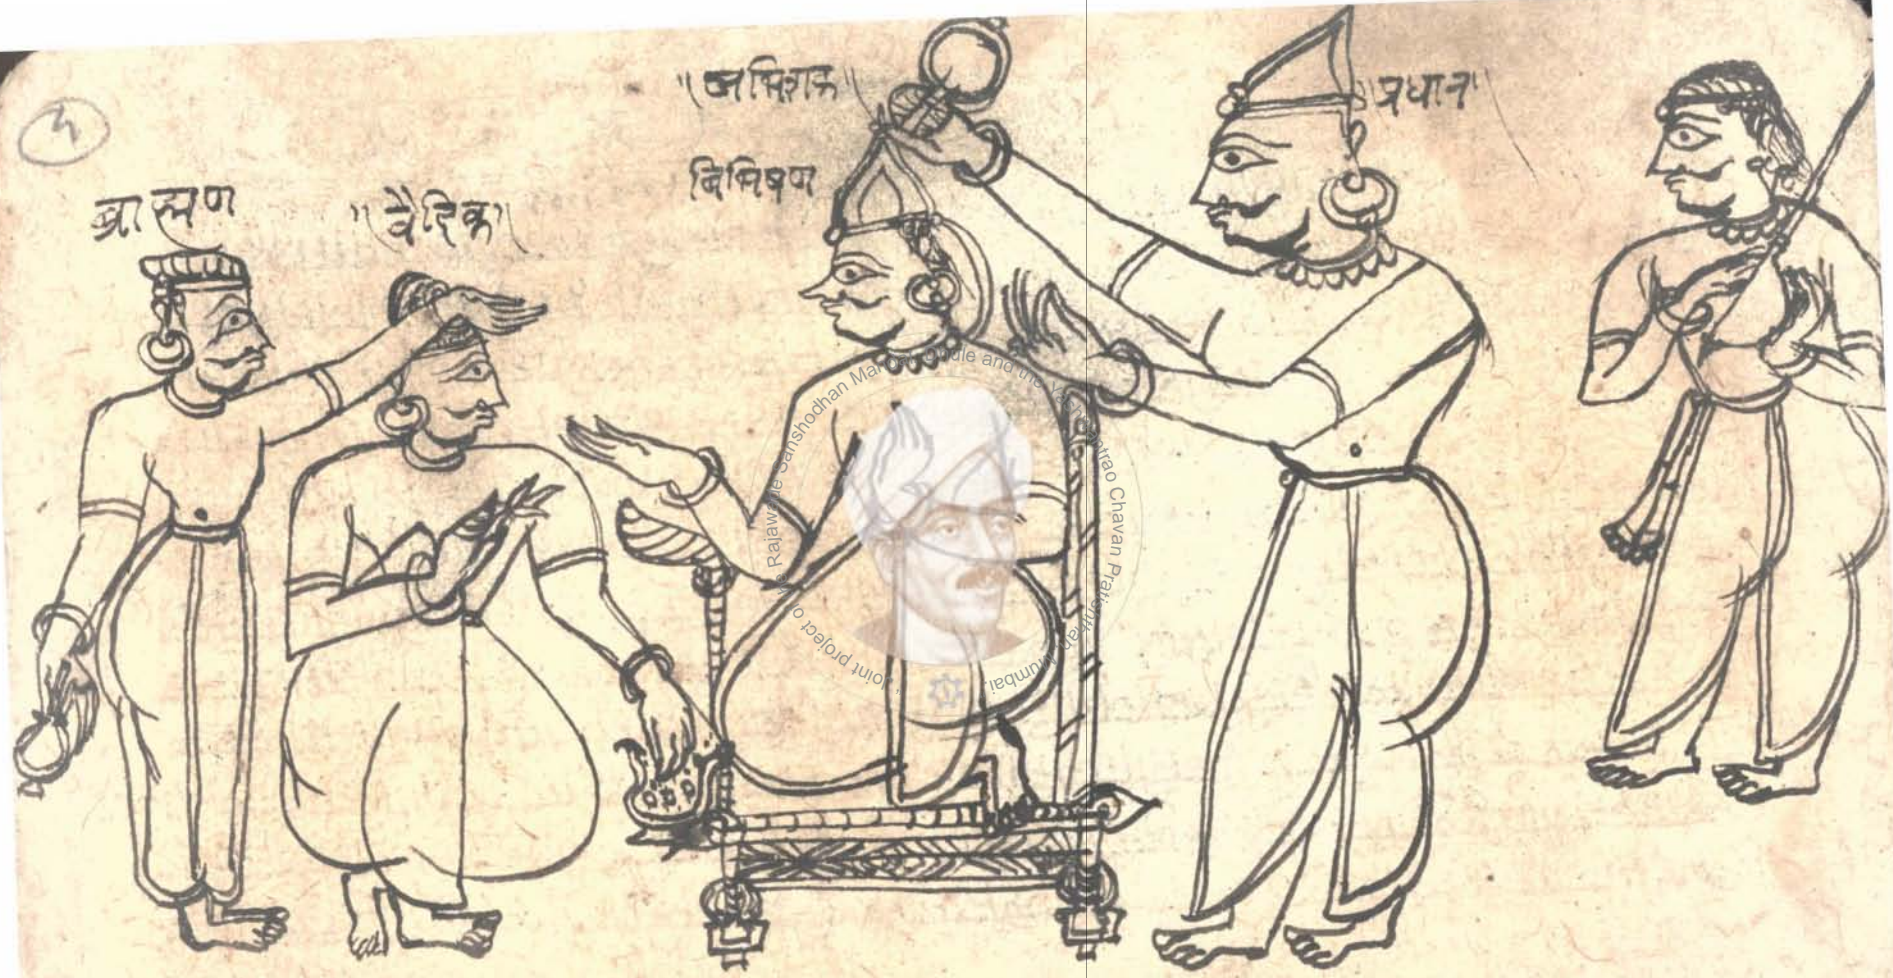 ५
ब्राह्मण
॥वैदिक॥
॥अभिशक॥
बिभिषण
॥प्रधान॥
"Joint project of the Rajawade Sanshodhan Mandal, Dhule and the Yashwantrao Chavan Pratishthan, Mumbai."